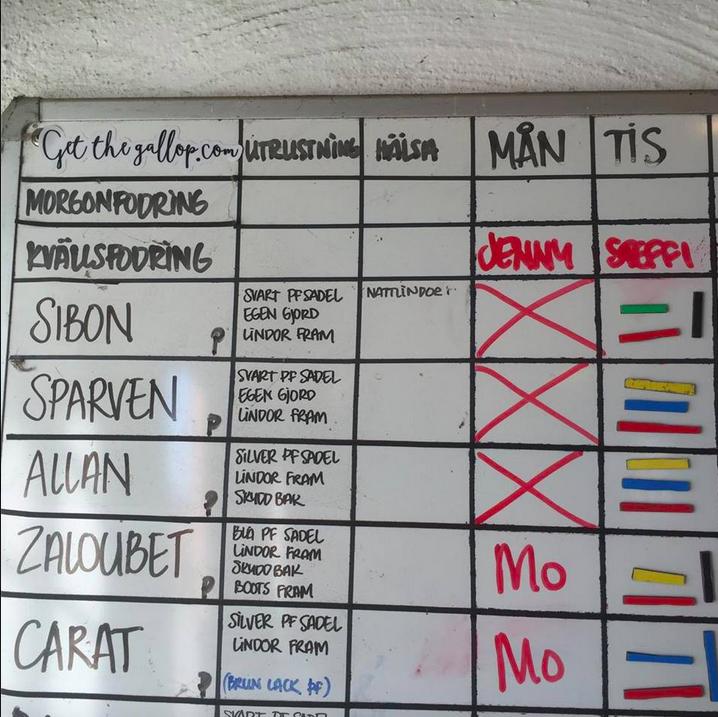 Get the gallop.com UTRUSTNING HÄLSA MÅN TIS
MORGONFODRING
KVÄLLSFODRING JENNY STEFFI
SIBON P
SVART PF SADEL
EGEN GJORD
LINDOR FRAM
SPARVEN P
SVART PF SADEL
EGEN GJORD
LINDOR FRAM
ALLAN P
SILVER PF SADEL
LINDOR FRAM
SKYDD BAK
ZALOUBET P
BLÅ PF SADEL
LINDOR FRAM
SKYDD BAK
BOOTS FRAM
Mo
CARAT P
SILVER PF SADEL
LINDOR FRAM
(BRUN LACK PF)
Mo
SVART PF SADEL